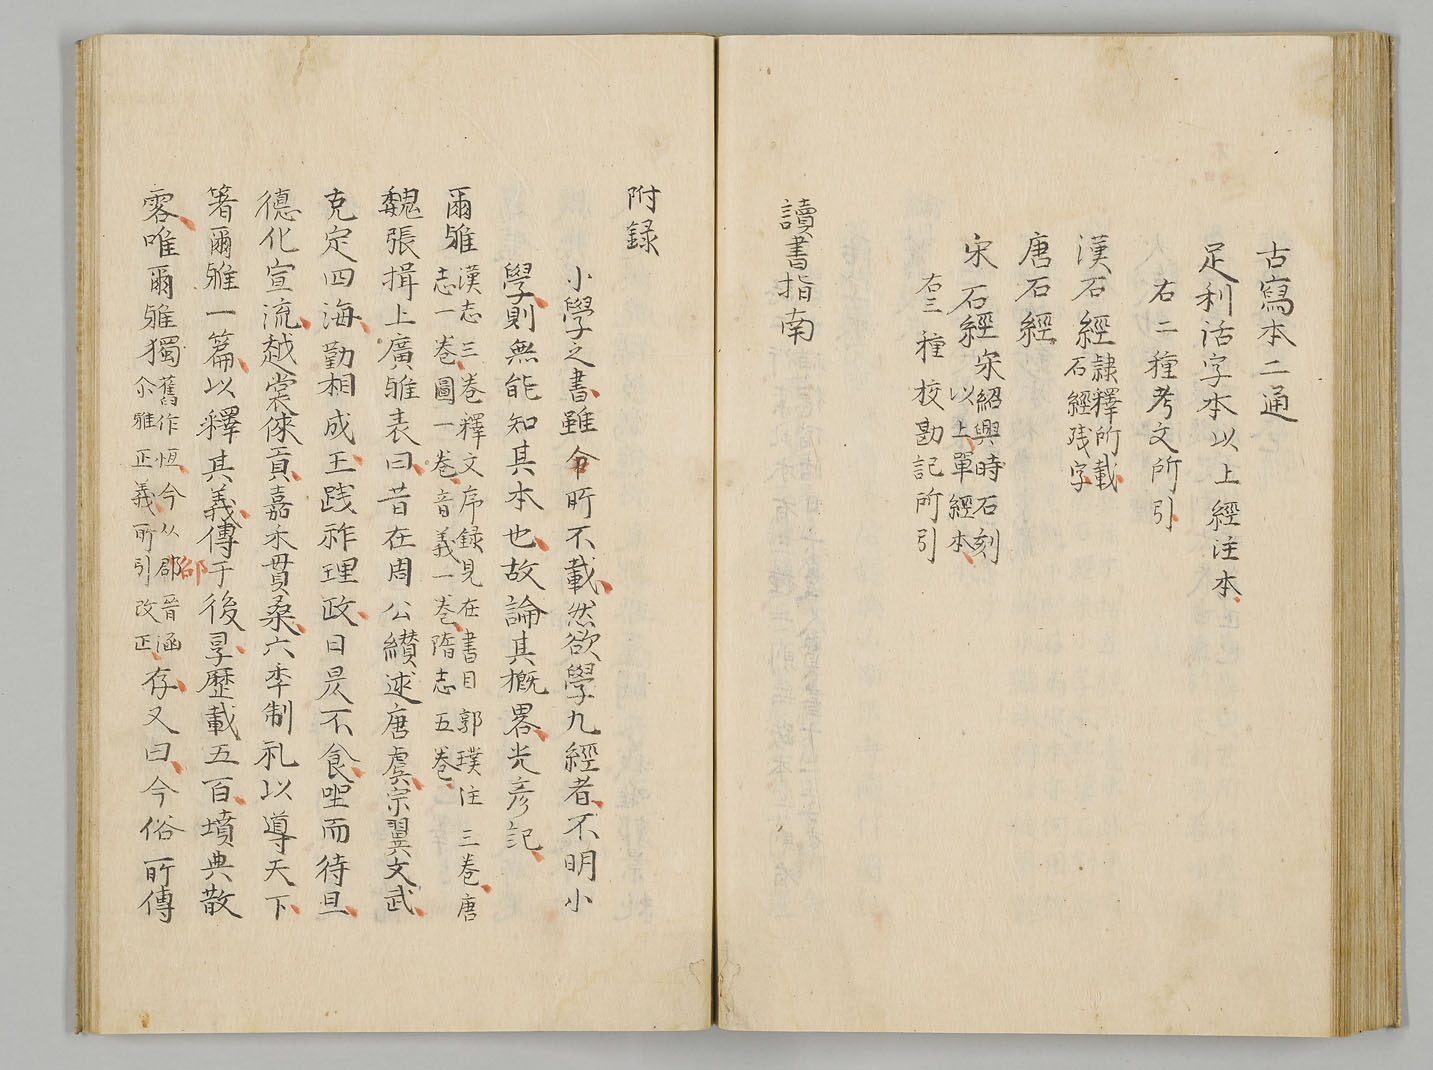 古寫本二通
足利活字本以上經注本
右二種考文所引
漢石經隷釋所載
石經残字
唐石經
宋石經宋紹興時石刻
以上單經本
右三種校勘記所引
讀書指南
附録
小學之書雖今所不載然欲學九經者不明小
學則無能知其本也故論其概畧光彦記
爾雅漢志三巻釋文序録見在書目郭璞注三巻唐
志一巻圖一巻音義一巻隋志五巻
魏張揖上廣雅表曰昔在周公纉述唐虞宗翼文武
克定四海勤相成王践祚理政日昃不食坐而待旦
德化宣流越裳俫貢嘉禾貫桑六年制礼以導天下
著爾雅一篇以釋其義傳于後孠歷載五百墳典散
零唯爾雅獨舊作恆今从郡晋涵
尒雅正義所引改正存又曰今俗所傳
邵